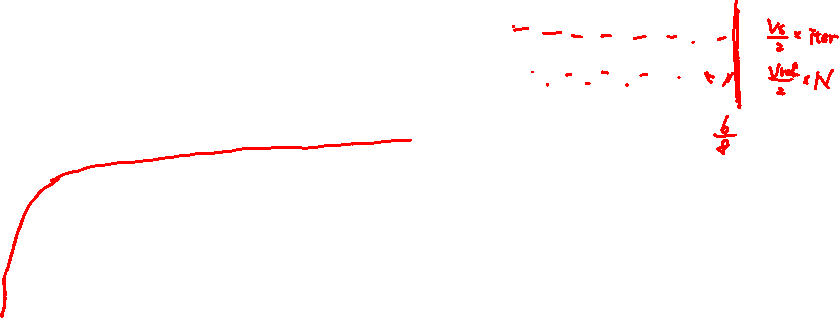 Vs/2 × iter
Vref/2 × N
6/8